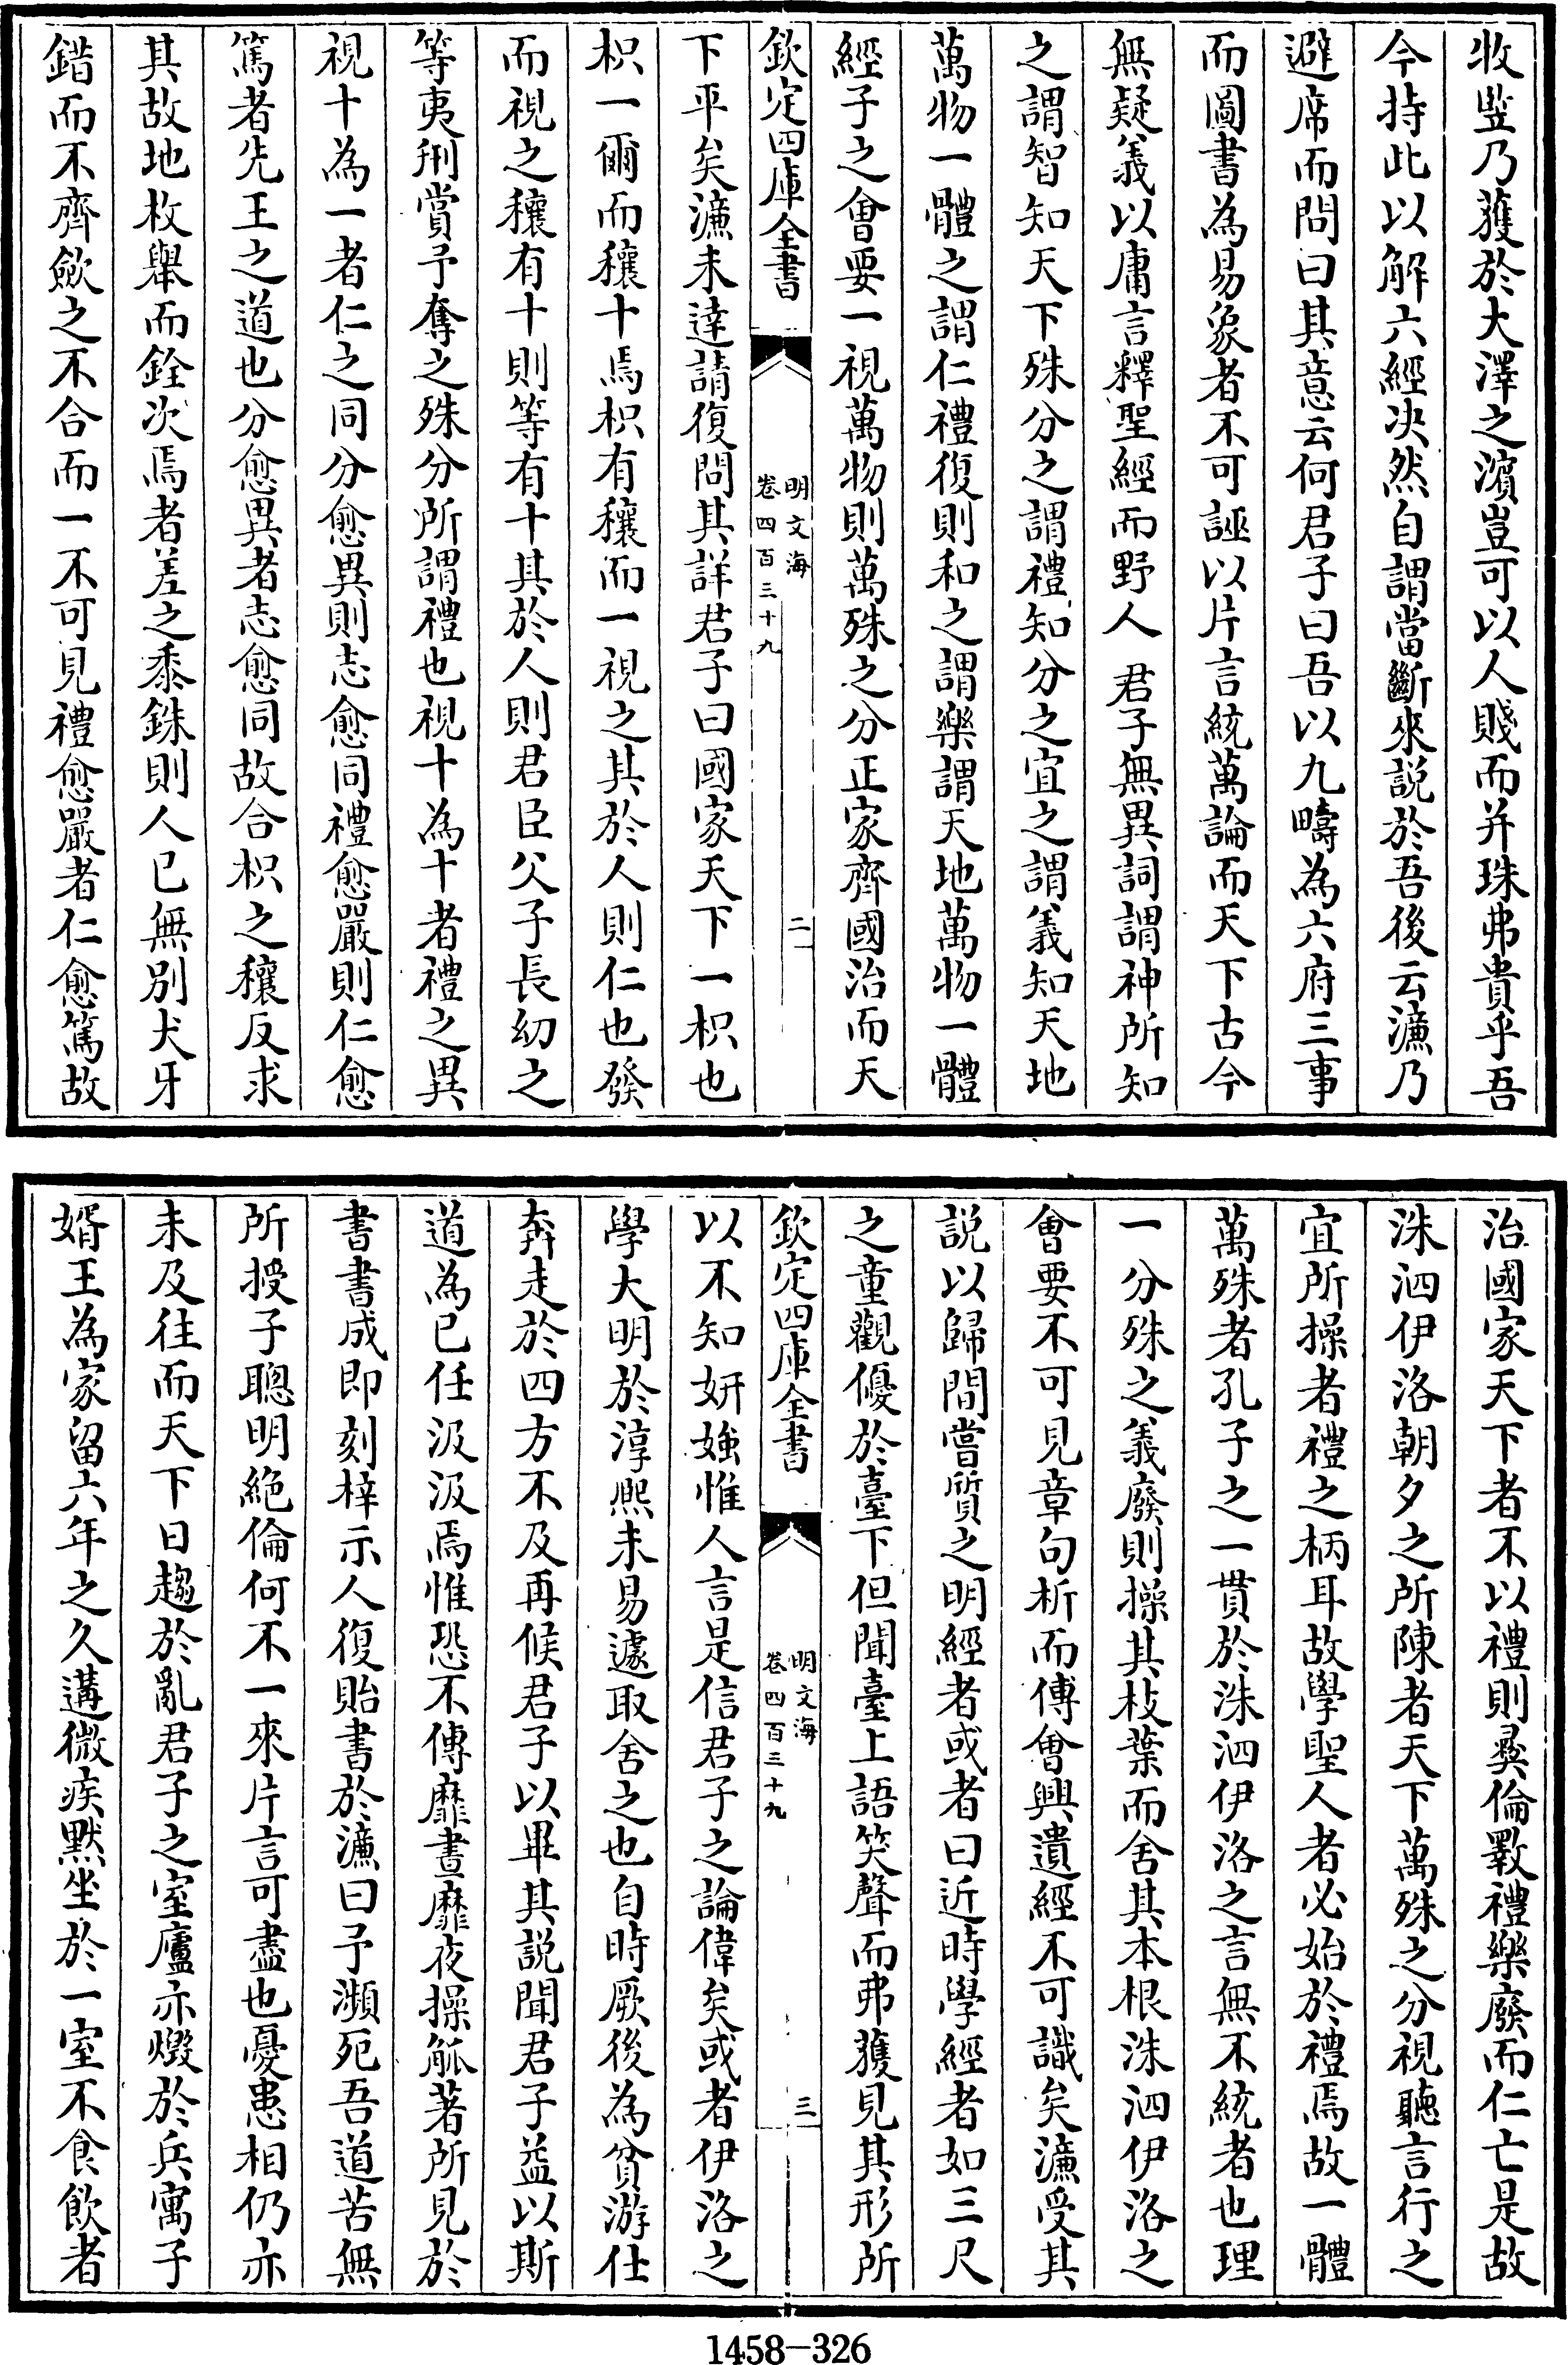 牧豎乃獲於大澤之濱豈可以人賤而并珠弗貴乎吾
今持此以解六經决然自謂當斷來説於吾後云濂乃
避席而問曰其意云何君子曰吾以九疇為六府三事
而圖書為易象者不可誣以片言統萬論而天下古今
無疑義以庸言釋聖經而野人君子無異詞謂神所知
之謂智知天下殊分之謂禮知分之宜之謂義知天地
萬物一體之謂仁禮復則和之謂樂謂天地萬物一體
經子之會要一視萬物則萬殊之分正家齊國治而天
欽定四庫全書
明文海
卷四百三十九
二
下平矣濂未逹請復問其詳君子曰國家天下一枳也
枳一爾而穰十焉枳有穰而一視之其於人則仁也發
而視之穰有十則等有十其於人則君臣父子長幼之
等夷刑賞予奪之殊分所謂禮也視十為十者禮之異
視十為一者仁之同分愈異則志愈同禮愈嚴則仁愈
篤者先王之道也分愈異者志愈同故合枳之穰反求
其故地枚舉而銓次焉者差之黍銖則人已無别犬牙
錯而不齊歛之不合而一不可見禮愈嚴者仁愈篤故
治國家天下者不以禮則彛倫斁禮樂廢而仁亡是故
洙泗伊洛朝夕之所陳者天下萬殊之分視聽言行之
宜所操者禮之柄耳故學聖人者必始於禮焉故一體
萬殊者孔子之一貫於洙泗伊洛之言無不統者也理
一分殊之義廢則操其枝葉而舍其本根洙泗伊洛之
會要不可見章句析而傅會興遺經不可識矣濂受其
説以歸間嘗質之明經者或者曰近時學經者如三尺
之童觀優於臺下但聞臺上語笑聲而弗獲見其形所
欽定四庫全書
明文海
卷四百三十九
三
以不知妍媸惟人言是信君子之論偉矣或者伊洛之
學大明於淳熙未易遽取舍之也自時厥後為貧游仕
奔走於四方不及再候君子以畢其説聞君子益以斯
道為已任汲汲焉惟恐不傳靡晝靡夜操觚著所見於
書書成即刻梓示人復貽書於濂曰予瀕死吾道苦無
所授子聰明絶倫何不一來片言可盡也憂患相仍亦
未及往而天下日趨於亂君子之室廬亦燬於兵寓子
婿王為家留六年之久遘微疾默坐於一室不食飲者
1458-326